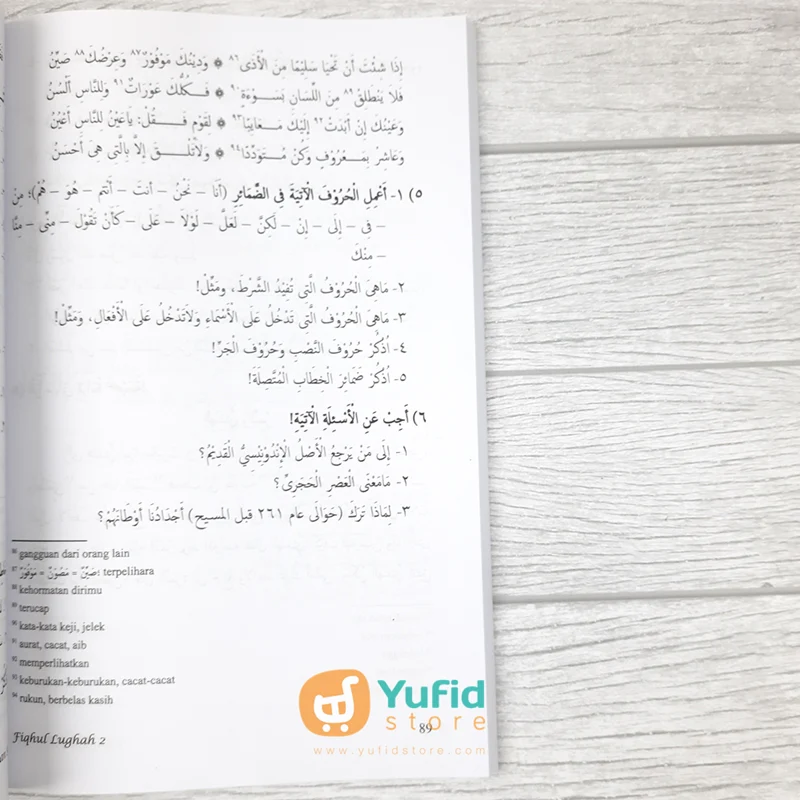 إِذَا شِئْتَ أَنْ تَحْيَا سَلِيْمًا مِنَ الْأَذَى٨٦ ۞ وَدِيْنُكَ مَوْفُوْرٌ٨٧ وَعِرْضُكَ٨٨ صَيِّنٌ
فَلاَ يَنْطَلِقْ٨٩ مِنَ اللِّسَانِ بِسَـوْءَةٍ٩٠ ۞ فَـكُلُّكَ عَوْرَاتٌ٩١ وَلِلنَّاسِ أَلْسُنُ
وَعَيْنُكَ إِنْ أَبْدَتْ٩٢ إِلَيْكَ مَـعَايِبًا٩٣ ۞ لِقَوْمٍ فَـقُلْ: يَاعَيْنُ لِلنَّاسِ أَعْيُنُ
وَعَاشِرْ بِمَـعْرُوْفٍ وَكُنْ مُـتَوَدِّدًا٩٤ ۞ وَلاَتَلْـقَ إِلاَّ بِالَّتِى هِىَ أَحْسَنُ
٥) ١- أَعْمِلِ الْحُرُوْفَ الْآتِيَةَ فِى الضَّمَائِرِ (أَنَا – نَحْنُ – أَنتَ – أَنتم – هُوَ – هُمْ)؛ مِنْ
– فِى – إِلَى – إِنْ – لَكِنَّ – لَعَلَّ – لَوْلاَ – عَلَى – كَأَنْ تَقُوْلَ – مِنِّى – مِنَّا
– مِنْكَ
٢- مَاهِىَ الْحُرُوْفُ الَّتِى تُفِيْدُ الشَّرْطَ، ومَثِّلْ!
٣- مَاهِىَ الْحُرُوْفُ الَّتِى تَدْخُلُ عَلَى الْأَسْمَاءِ وَلاَتَدْخُلُ عَلَى الْأَفْعَالِ، وَمَثِّلْ!
٤- اُذْكُرْ حُرُوْفَ النَّصْبِ وَحُرُوْفَ الْجَرِّ!
٥- اُذْكُرْ ضَمَائِرَ الْخِطَابِ الْمُتَّصِلَةَ!
٦) أَجِبْ عَنِ الْأَسْـئِلَةِ الْآتِيَةِ!
١- إِلَى مَنْ يَرْجِعُ الْأَصْلُ الْإِنْدُوْنِيْسِىُّ الْقَدِيْمُ؟
٢- مَامَعْنَى الْعَصْرِ الْحَجَرِىِّ؟
٣- لِمَاذَا تَرَكَ (حَوَالَى عام ٢٦١ قبل المسيح) أَجْدَادُنَا أَوْطَانَهُمْ؟
86 gangguan dari orang lain
87 صَيِّنٌ = مَصُوْنٌ = مَوْفُوْرٌ: terpelihara
88 kehormatan dirimu
89 terucap
90 kata-kata keji, jelek
91 aurat, cacat, aib
92 memperlihatkan
93 keburukan-keburukan, cacat-cacat
94 rukun, berbelas kasih
Fiqhul Lughah 2
89
Yufid
store
www.yufidstore.com